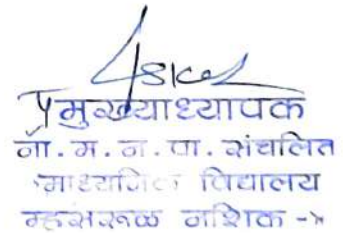 प्रमुख्याध्यापक
ना. म. न. पा. संचलित
माध्यमिक विद्यालय
म्हसरूळ नाशिक -४